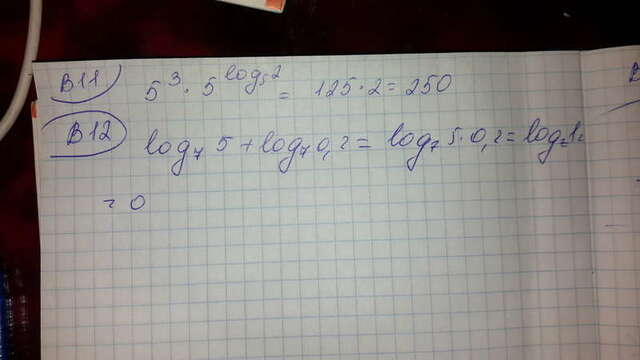 B11) 5³ · 5^log₅2 = 125 · 2 = 250
B12) log₇ 5 + log₇ 0,2 = log₇ 5 · 0,2 = log₇ 1 =
= 0